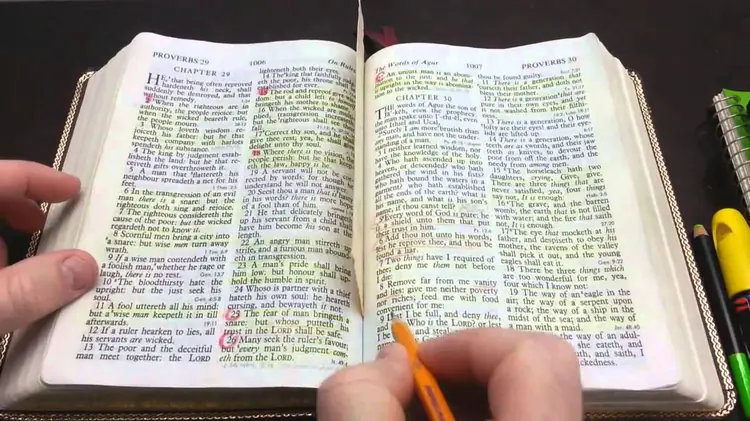 PROVERBS 29
1006
On Rule
CHAPTER 29
HE, that being often reproved
hardeneth his neck, shall
suddenly be destroyed, and that
without remedy.
2 When the righteous are in
authority, the people rejoice: but
when the wicked beareth rule,
the people mourn.
3 Whoso loveth wisdom re-
joiceth his father: but he that
keepeth company with harlots
spendeth his substance.
4 The king by judgment estab-
lisheth the land: but he that re-
ceiveth gifts overthroweth it.
5 A man that flattereth his
neighbour spreadeth a net for his
feet.
6 In the transgression of an evil
man there is a snare: but the
righteous doth sing and rejoice.
7 The righteous considereth the
cause of the poor: but the wicked
regardeth not to know it.
8 Scornful men bring a city into
a snare: but wise men turn away
wrath.
9 If a wise man contendeth with
a foolish man, whether he rage or
laugh, there is no rest.
10 The bloodthirsty hate the
upright: but the just seek his
soul.
11 A fool uttereth all his mind:
but a wise man keepeth it in till
afterwards.
12 If a ruler hearken to lies, all
his servants are wicked.
13 The poor and the deceitful
man meet together: the LORD
lighteneth both their eyes.
14 The king that faithfully
the poor, his throne shall
established for ever.
15 The rod and reproof
dom: but a child left
bringeth his mother to
16 When the wicked are
plied, transgression increas
but the righteous shall see
fall.
17 Correct thy son, and he
give thee rest; yea, he shall
delight unto thy soul.
18 Where there is no vision,
people perish: but he that
the law, happy is he.
19 A servant will not be
rected by words: for though
understand he will not answer.
20 Seest thou a man that is hasty
in his words? there is more hope
of a fool than of him.
21 He that delicately bringeth
up his servant from a child shall
have him become his son at the
length.
22 An angry man stirreth up
strife, and a furious man aboundeth
in transgression.
23 A man's pride shall bring
him low: but honour shall up-
hold the humble in spirit.
24 Whoso is partner with a thief
hateth his own soul: he heareth
cursing, and bewrayeth it not.
25 The fear of man bringeth a
snare: but whoso putteth his
trust in the LORD shall be safe.
26 Many seek the ruler's favour;
but every man's judgment com-
eth from the LORD.
The Words of Agur
1007
PROVERBS 30
An unjust man is an abom-
ination to the just: and he that
upright in the way is abomination
to the wicked.
CHAPTER 30
THE words of Agur the son of
the prophecy:
man spake unto Ithiel,
and Ucal,
2 Surely I am more brutish than
man, and have not the under-
standing of a man.
3 I neither learned wisdom,
nor have the knowledge of the holy.
4 Who hath ascended up into
heaven, or descended? who hath
gathered the wind in his fists?
who hath bound the waters in a
garment? who hath established
all the ends of the earth? what is
his name, and what is his son's
name, if thou canst tell?
5 Every word of God is pure: he
is a shield unto them that put
their trust in him.
6 Add thou not unto his words,
lest he reprove thee, and thou be
found a liar.
7 Two things have I required of
thee; deny me them not before
I die:
8 Remove far from me vanity
and lies: give me neither poverty
nor riches; feed me with food
convenient for me:
9 Lest I be full, and deny thee,
and say, Who is the LORD? or lest
I be poor, and steal
thou be found guilty.
11 There is a generation that
curseth their father, and doth not
bless their mother.
12 There is a generation that are
pure in their own eyes, and yet
is not washed from their filthi-
13 There is a generation, O how
lofty are their eyes! and their eye-
lids are lifted up.
14 There is a generation, whose
teeth are as swords, and their jaw
teeth as knives, to devour the
poor from off the earth, and the
needy from among men.
15 The horseleach hath two
daughters, crying, Give, give.
There are three things that are
never satisfied, yea, four things
say not, It is enough:
16 The grave; and the barren
womb; the earth that is not filled
with water; and the fire that saith
not, It is enough.
17 The eye that mocketh at his
father, and despiseth to obey his
mother, the ravens of the valley
shall pick it out, and the young
eagles shall eat it.
18 There be three things which
are too wonderful for me, yea,
four which I know not:
19 The way of an eagle in the
air; the way of a serpent upon
a rock; the way of a ship in the
midst of the sea; and the way of
a man with a maid.
the way of an adul-
she eateth, and
mouth, and saith, I
wickedness.